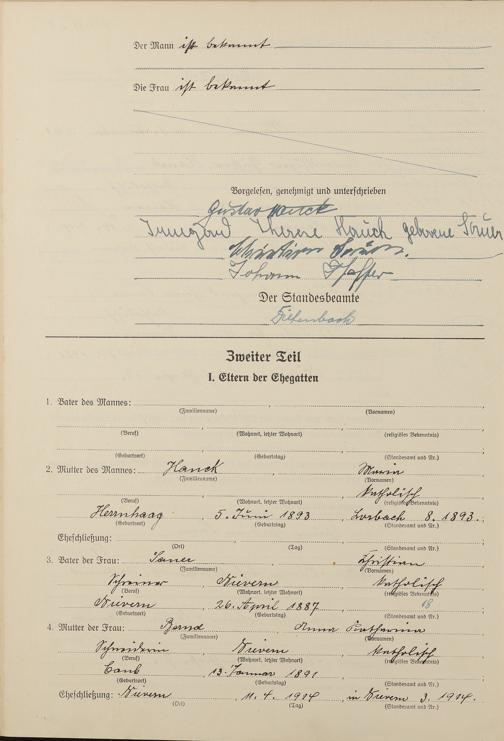 Der Mann ist bekannt
Die Frau ist bekannt
Vorgelesen, genehmigt und unterschrieben
Gustav Hauck
Irmgard Therese Hauck geborene Sauer
Christian Sauer.
Johann Pfeffer
Der Standesbeamte
Zweiter Teil
I. Eltern der Ehegatten
1. Vater des Mannes:
(Familienname) (Vornamen)
(Beruf) (Wohnort, letzter Wohnort) (religiöses Bekenntnis)
(Geburtsort) (Geburtstag) (Standesamt und Nr.)
2. Mutter des Mannes: Hauck Maria
(Familienname) (Vornamen)
katholisch
(Beruf) (Wohnort, letzter Wohnort) (religiöses Bekenntnis)
5. Juni 1893 8. 1893.
(Geburtsort) (Geburtstag) (Standesamt und Nr.)
Eheschließung:
(Ort) (Tag) (Standesamt und Nr.)
3. Vater der Frau: Sauer Christian
(Familienname) (Vornamen)
Schreiner Nievern katholisch
(Beruf) (Wohnort, letzter Wohnort) (religiöses Bekenntnis)
Nievern 26. April 1887 18
(Geburtsort) (Geburtstag) (Standesamt und Nr.)
4. Mutter der Frau: Anna Katharina
(Familienname) (Vornamen)
Schneiderin Nievern katholisch
(Beruf) (Wohnort, letzter Wohnort) (religiöses Bekenntnis)
Caub 13. Januar 1891
(Geburtsort) (Geburtstag) (Standesamt und Nr.)
Eheschließung: Nievern 11. 4. 1914 in Nievern 3. 1914.
(Ort) (Tag) (Standesamt und Nr.)